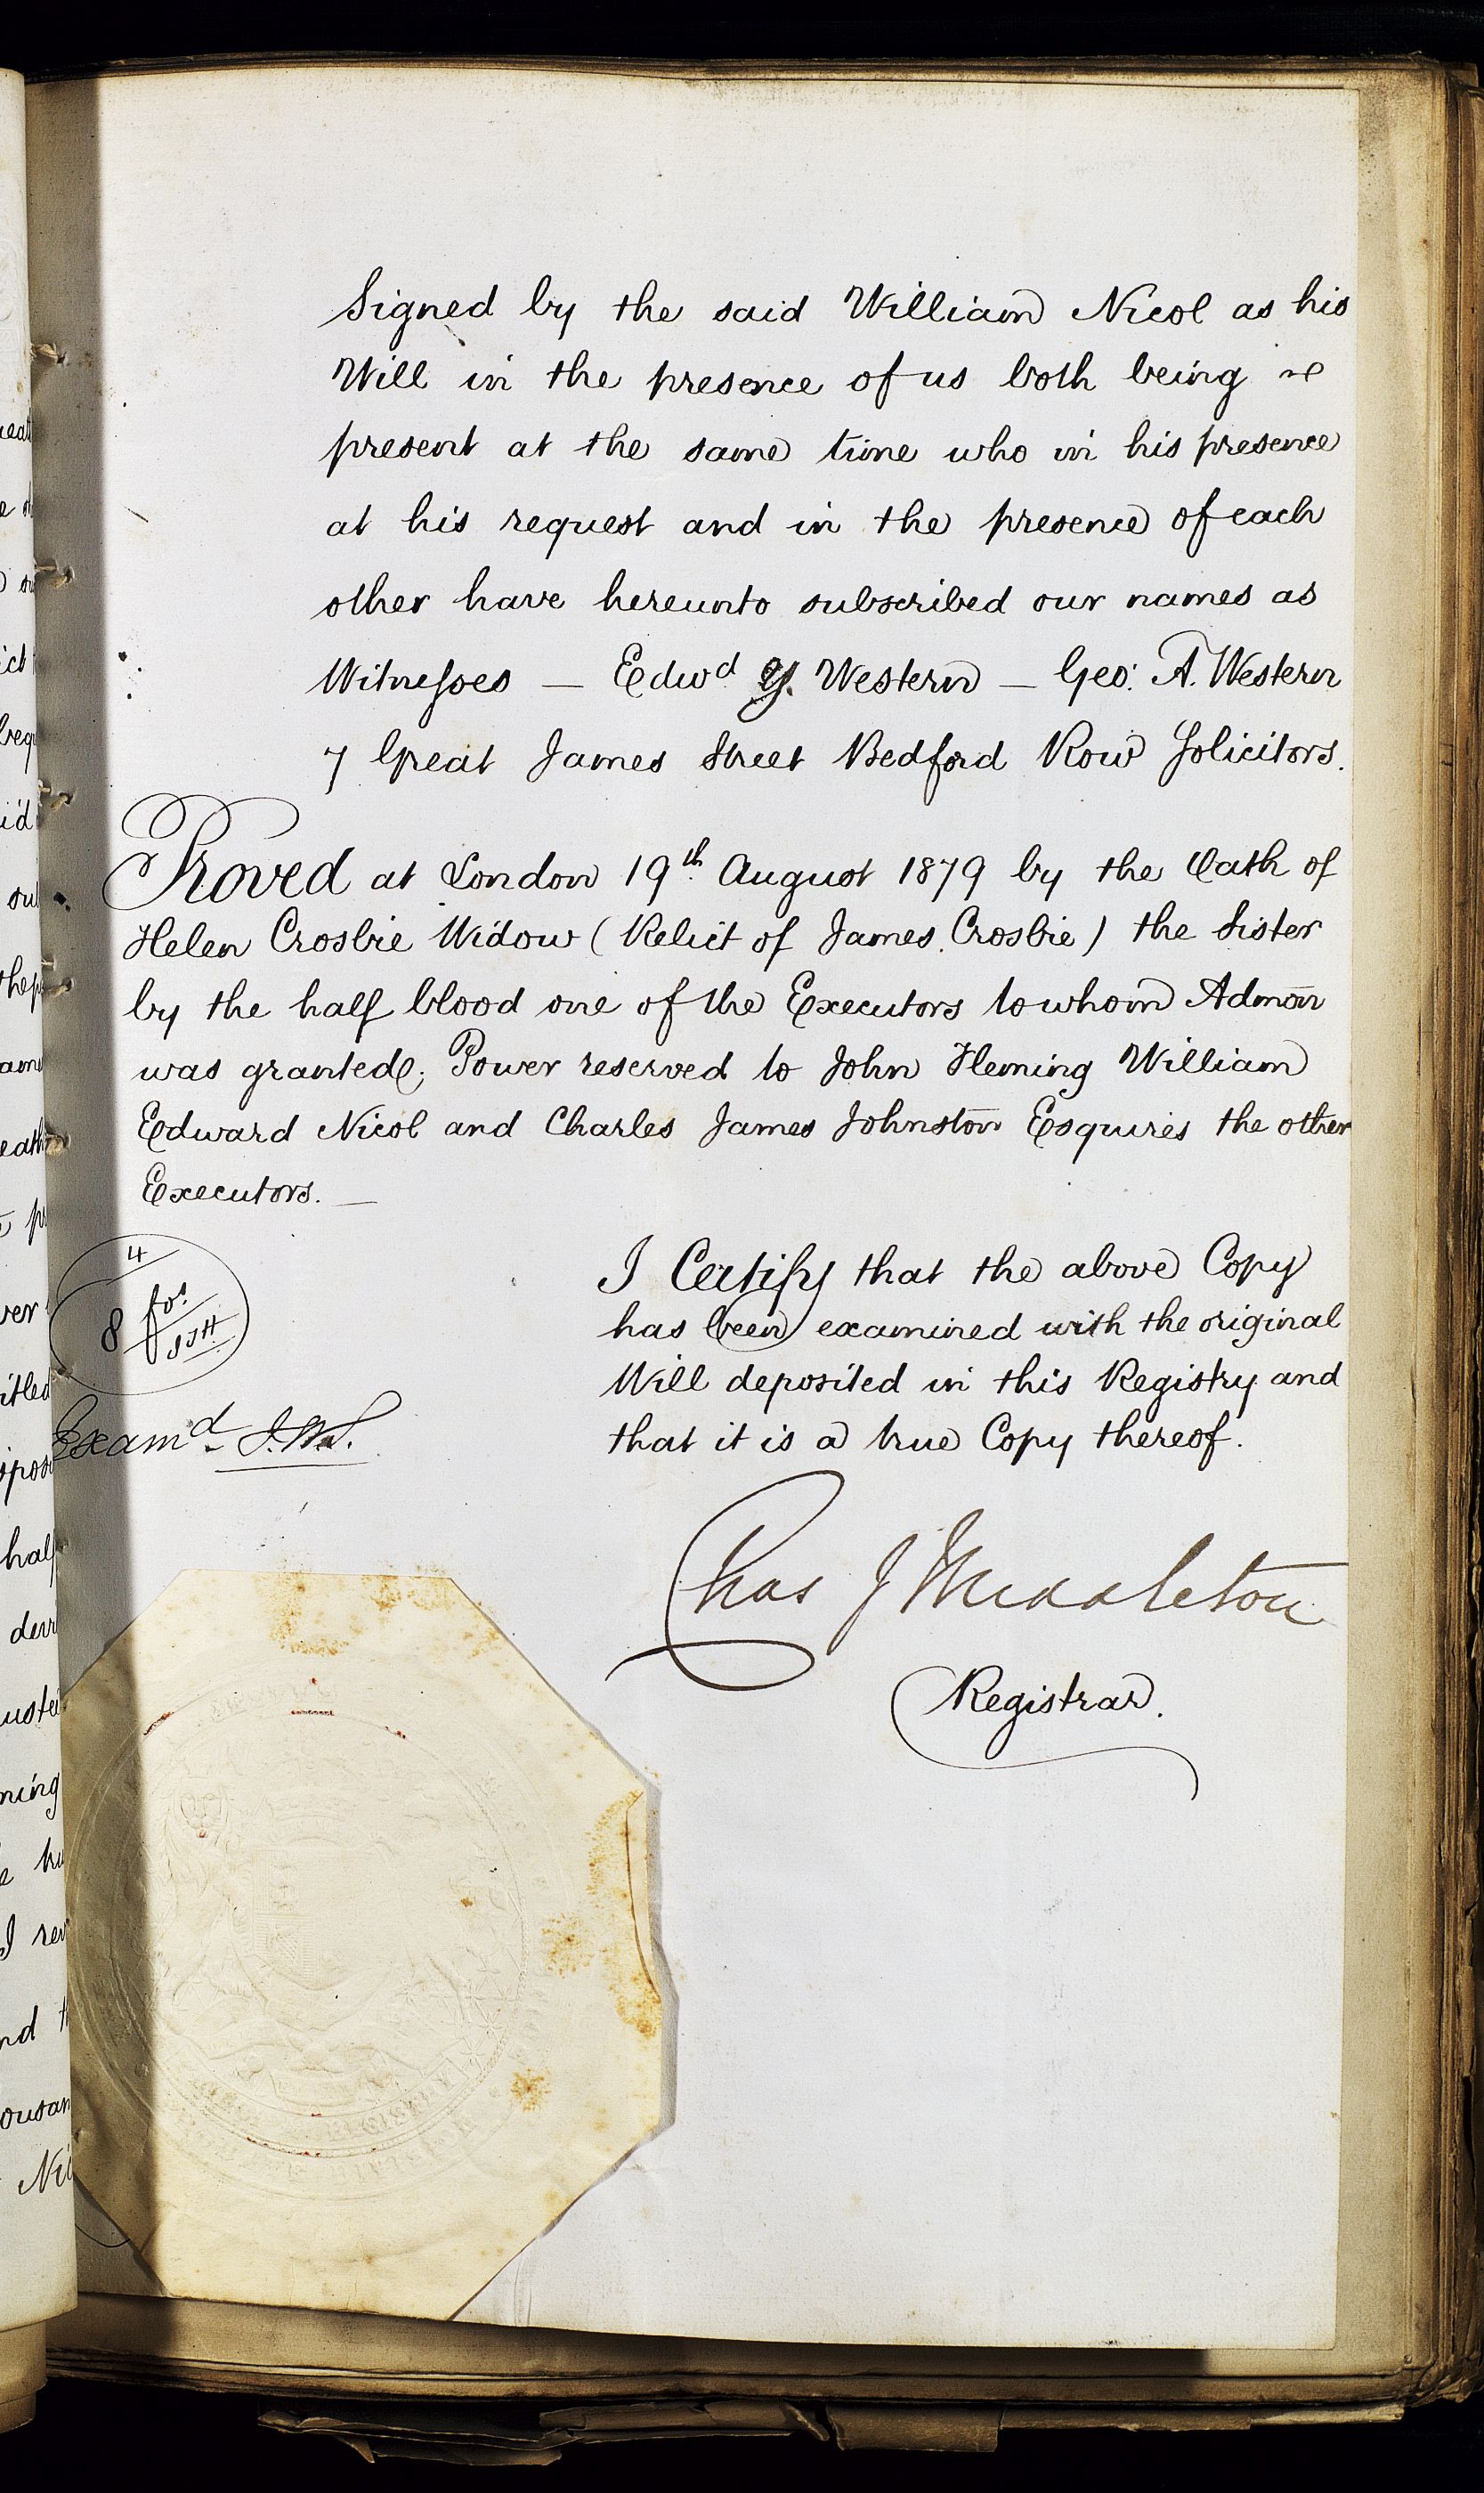 Signed by the said William Nicol as his
Will in the presence of us both being
present at the same time who in his presence
at his request and in the presence of each
other have hereunto subscribed our names as
Witnesses — Edwd Y. Western — Geo: A. Western
7 Great James Street Bedford Row Solicitors.
Proved at London 19th August 1879 by the Oath of
Helen Crosbie Widow (Relict of James Crosbie) the Sister
by the half blood one of the Executors to whom Admon
was granted; Power reserved to John Fleming William
Edward Nicol and Charles James Johnston Esquires the other
Executors. —
4
8 fos
I Certify that the above Copy
has been examined with the original
Will deposited in this Registry and
that it is a true Copy thereof.
Examd
Chas J Middleton
Registrar.